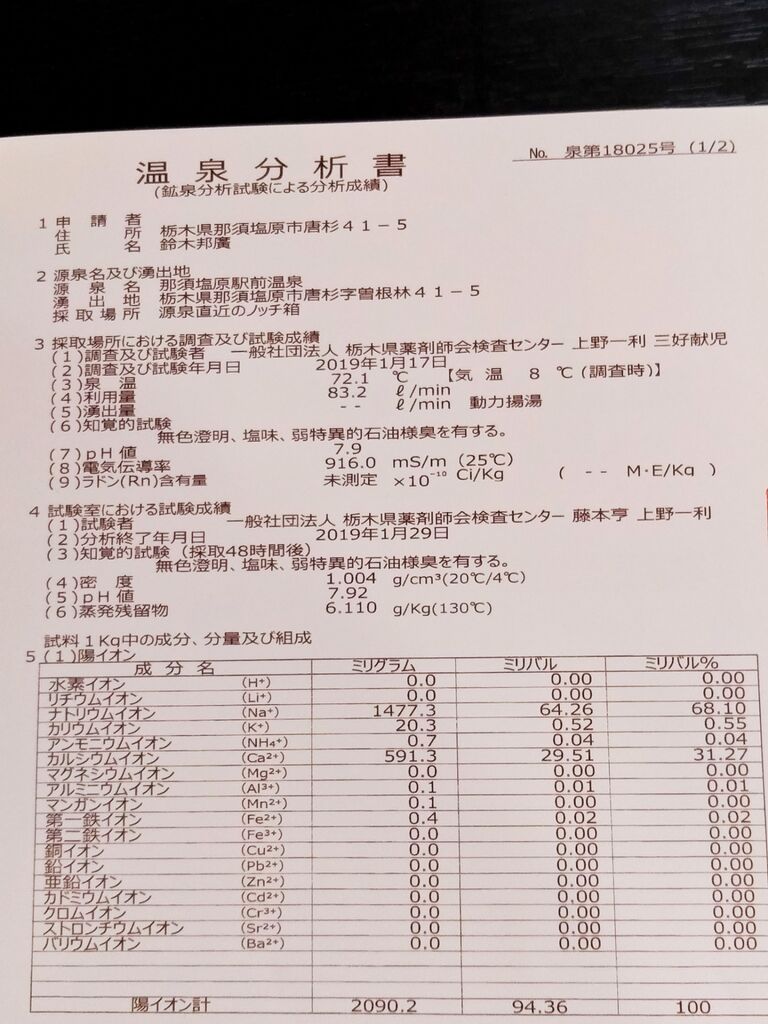 温泉分析書
No. 泉第18025号 (1/2)
(鉱泉分析試験による分析成績)
1 申請者
住所 栃木県那須塩原市唐杉41-5
氏名 鈴木邦廣
2 源泉名及び湧出地
源泉名 那須塩原駅前温泉
湧出地 栃木県那須塩原市唐杉字曽根林41-5
採取場所 源泉直近のノッチ箱
3 採取場所における調査及び試験成績
(1)調査及び試験者 一般社団法人 栃木県薬剤師会検査センター 上野一利 三好献児
(2)調査及び試験年月日 2019年1月17日
(3)泉温 72.1 ℃ 【気温 8 ℃(調査時)】
(4)利用量 83.2 ℓ/min
(5)湧出量 -- ℓ/min 動力揚湯
(6)知覚的試験
無色澄明、塩味、弱特異的石油様臭を有する。
(7)pH値 7.9
(8)電気伝導率 916.0 mS/m (25℃)
(9)ラドン(Rn)含有量 未測定 ×10⁻¹⁰ Ci/Kg ( -- M・E/Kg )
4 試験室における試験成績
(1)試験者 一般社団法人 栃木県薬剤師会検査センター 藤本亨 上野一利
(2)分析終了年月日 2019年1月29日
(3)知覚的試験(採取48時間後)
無色澄明、塩味、弱特異的石油様臭を有する。
(4)密度 1.004 g/cm³(20℃/4℃)
(5)pH値 7.92
(6)蒸発残留物 6.110 g/Kg(130℃)
試料1Kg中の成分、分量及び組成
5 (1)陽イオン
成分名 ミリグラム ミリバル ミリバル%
水素イオン (H⁺) 0.0 0.00 0.00
リチウムイオン (Li⁺) 0.0 0.00 0.00
ナトリウムイオン (Na⁺) 1477.3 64.26 68.10
カリウムイオン (K⁺) 20.3 0.52 0.55
アンモニウムイオン (NH₄⁺) 0.7 0.04 0.04
カルシウムイオン (Ca²⁺) 591.3 29.51 31.27
マグネシウムイオン (Mg²⁺) 0.0 0.00 0.00
アルミニウムイオン (Al³⁺) 0.1 0.01 0.01
マンガンイオン (Mn²⁺) 0.1 0.00 0.00
第一鉄イオン (Fe²⁺) 0.4 0.02 0.02
第二鉄イオン (Fe³⁺) 0.0 0.00 0.00
銅イオン (Cu²⁺) 0.0 0.00 0.00
鉛イオン (Pb²⁺) 0.0 0.00 0.00
亜鉛イオン (Zn²⁺) 0.0 0.00 0.00
カドミウムイオン (Cd²⁺) 0.0 0.00 0.00
クロムイオン (Cr³⁺) 0.0 0.00 0.00
ストロンチウムイオン (Sr²⁺) 0.0 0.00 0.00
バリウムイオン (Ba²⁺) 0.0 0.00 0.00
陽イオン計 2090.2 94.36 100